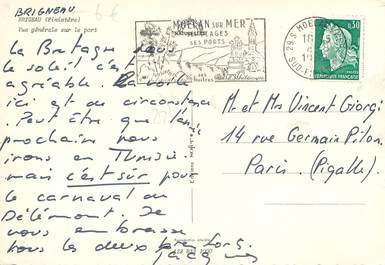 BRIGNEAU
BRIGNEAU (Finistère)
Vue générale sur le port
6 €
MOELAN sur MER
PLAGES
SES PORTS
ses
huîtres
29 S MOELAN
0,30
La Bretagne sous
le soleil c'est
agréable. La voile
ici est de circonstance
. Peut être que l'année
prochaine nous
irons en Tunisie
mais c'est sûr pour
le carnaval au
Delémont. Je
vous embrasse
tous les deux bien fort.
Jacques
Mr et Mrs Vincent Giorgi
14 rue Germain Pilon
Paris (Pigalle).